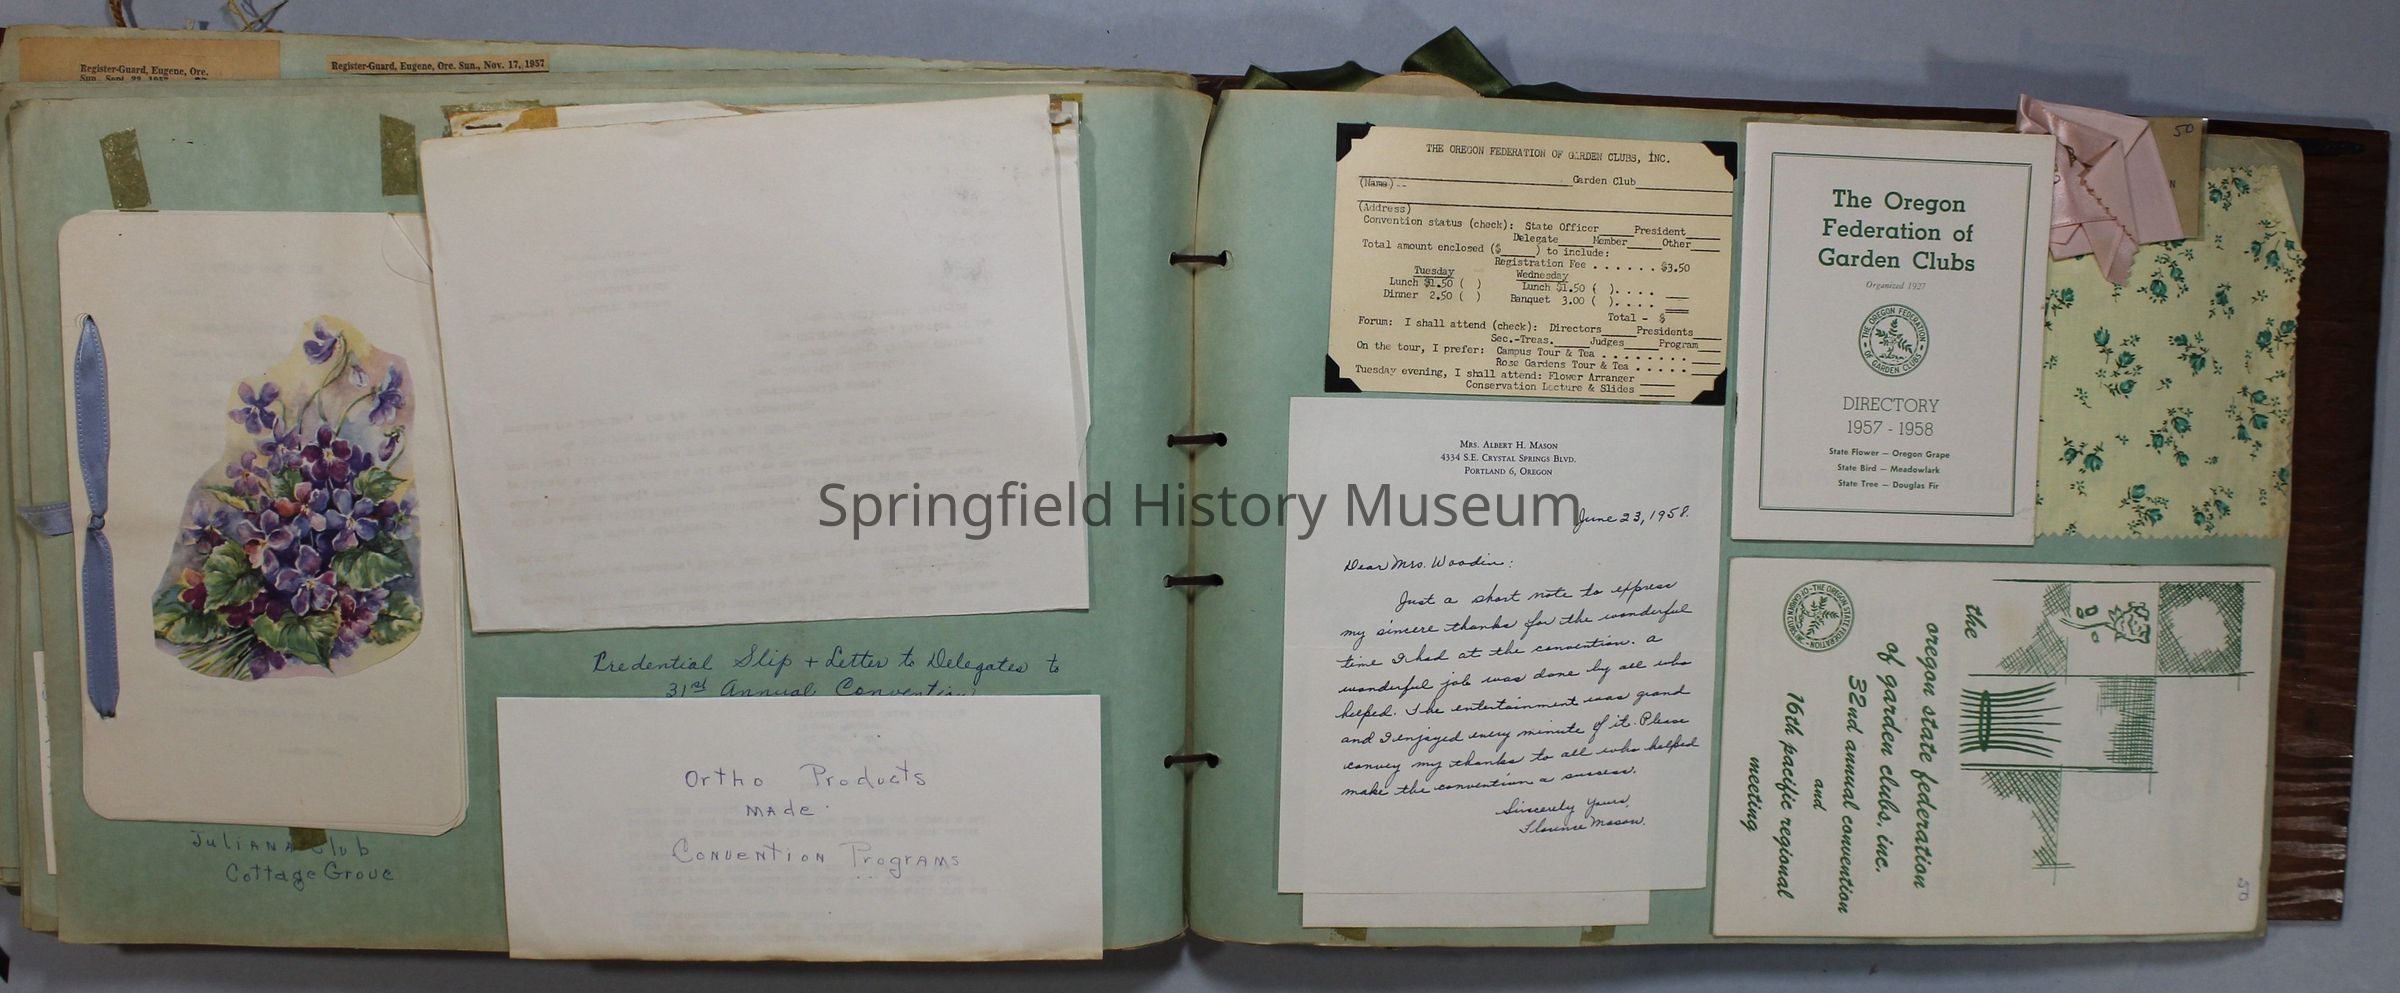 Register-Guard, Eugene, Ore.
Register-Guard, Eugene, Ore. Sun., Nov. 17, 1957
Juliana Club
Cottage Grove
Credential Slip + Letter to Delegates to
31st Annual Convention
Ortho Products
Made
Convention Programs
THE OREGON FEDERATION OF GARDEN CLUBS, INC.
(Name)-- Garden Club
(Address)
Convention status (check): State Officer President
Delegate Member Other
Total amount enclosed ($ ) to include:
Registration Fee ...... $3.50
Tuesday Wednesday
Lunch $1.50 ( ) Lunch $1.50 ( )....
Dinner 2.50 ( ) Banquet 3.00 ( )....
Total - $
Forum: I shall attend (check): Directors Presidents
Sec.-Treas. Judges Program
On the tour, I prefer: Campus Tour & Tea .........
Rose Gardens Tour & Tea .....
Tuesday evening, I shall attend: Flower Arranger
Conservation Lecture & Slides
Mrs. Albert H. Mason
4334 S.E. Crystal Springs Blvd.
Portland 6, Oregon
June 23, 1958.
Dear Mrs. Woodin:
Just a short note to express
my sincere thanks for the wonderful
time I had at the convention. A
wonderful job was done by all who
helped. The entertainment was grand
and I enjoyed every minute of it. Please
convey my thanks to all who helped
make the convention a success.
Sincerely Yours,
Florence Mason.
The Oregon
Federation of
Garden Clubs
Organized 1927
THE OREGON FEDERATION
OF GARDEN CLUBS
DIRECTORY
1957 - 1958
State Flower — Oregon Grape
State Bird — Meadowlark
State Tree — Douglas Fir
50
the
oregon state federation
of garden clubs, inc.
32nd annual convention
and
16th pacific regional
meeting
THE OREGON STATE FEDERATION
OF GARDEN CLUBS INC.
50
Springfield History Museum